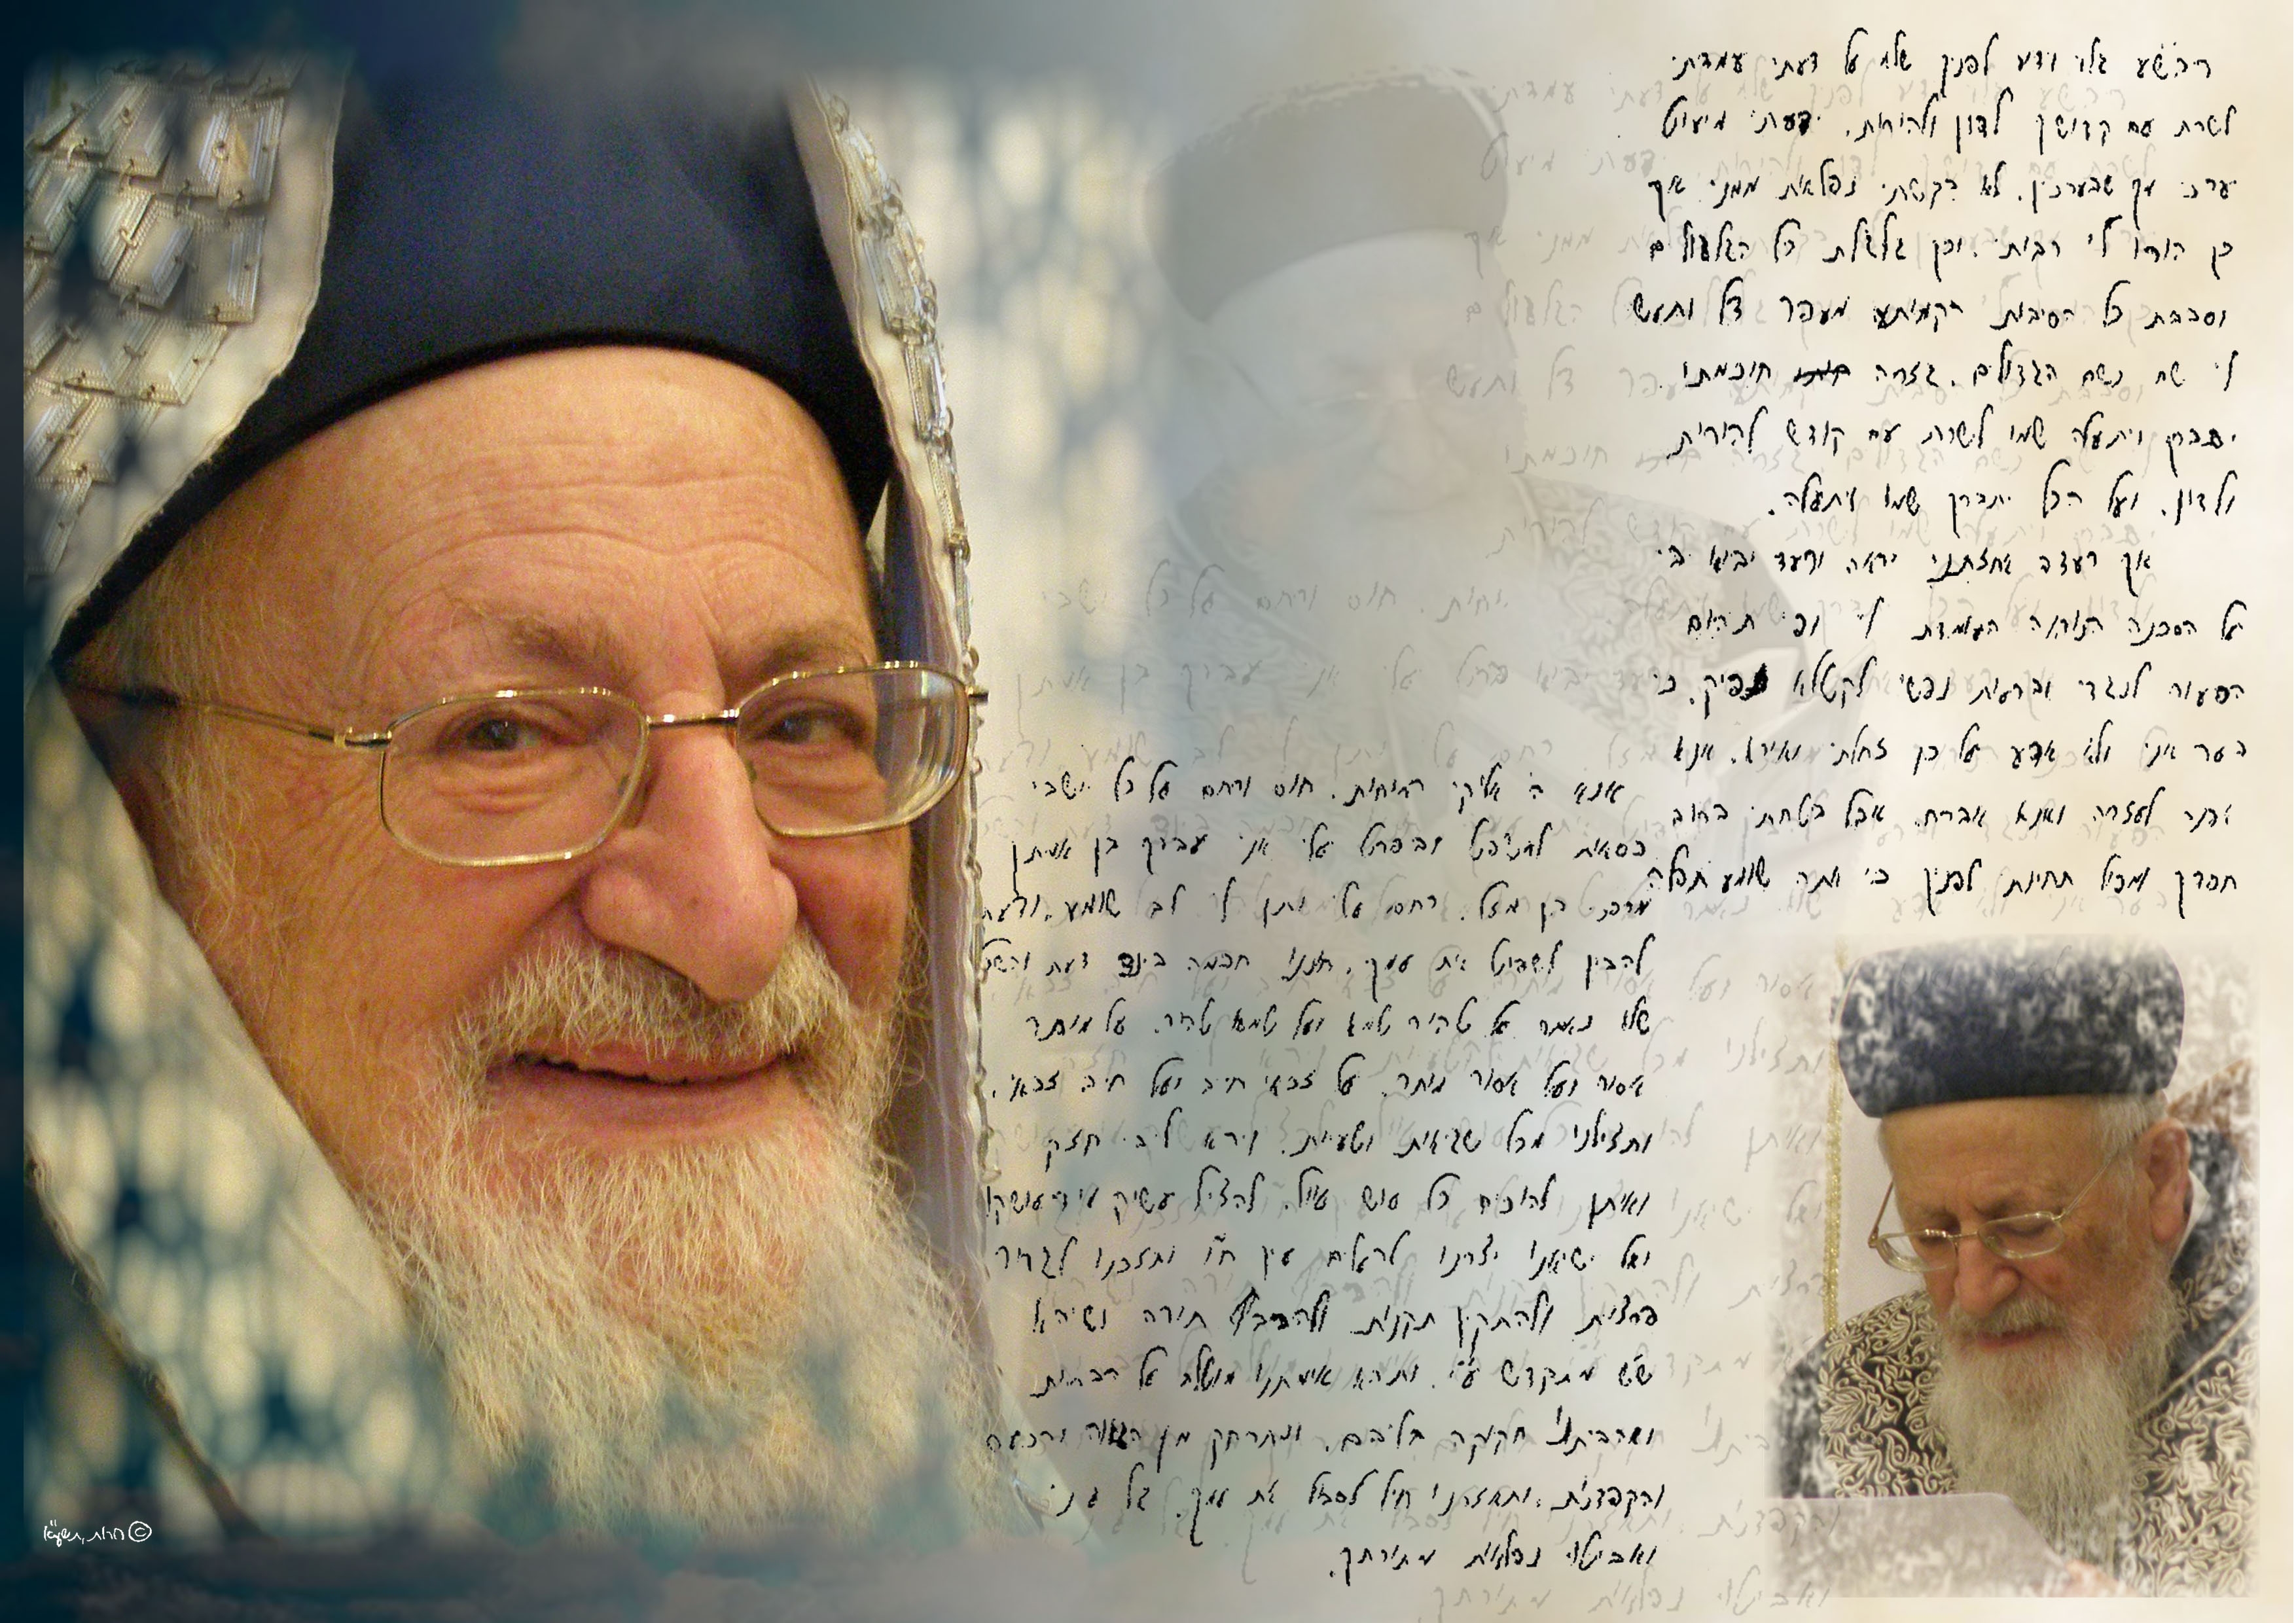 ריבש"ע גלוי וידוע לפניך שלא על דעתי עמדתי
לשרת עם קדושך לדון ולהורות. ידעתי מיעוט
ערכי מך שבערכין. לא בקשתי נפלאות ממני אך
כן הורו לי רבותי. וכן גלגלת כל הגלגולים
וסבבת כל הסיבות הקימות מעפר דל ותעש
לי שם כשם הגדולים. גזרה חוכמתו
יתברך ויתעלה שמו לשרת עם קודש להורות
ולדון. ועל הכל יתברך שמו ויתעלה.
אך רעדה אחזתני יראה ורעד יבוא בי
על הסכנה הנוראה העומדת לי ופי תהום
הפעור לנגדי וברעות נפשי לקטלא נפיק. כי
בער אני ולא אדע על כן זחלתי ואירא. אנא
אפנה לעזרה ואנא אברח. אבל בטחתי ברוב
חסדך ומפיל תחינתי לפניך כי אתה שומע תפלה
אנא ה' אלוקי הרוחות. חוס ורחם על כל יושבי
כסאות למשפט ובפרט עלי אני עבדך בן אמתך
מרדכי בן מזל. רחם עלי ותן לי לב שומע ודעת
להבין לשפוט את עמך. חנני חכמה בינה דעת והשכל
שלא נאמר על טהור טמא ועל טמא טהור. על מותר
אסור ועל אסור מותר. על זכאי חייב ועל חייב זכאי.
ותצילני מכל שגיאות וטעויות. ויהא לבי חזק
ואיתן להוכיח כל עושי עוול להציל עשוק מיד עושקו
ואל ישיאנו יצרנו להעלים עין ח"ו ותזכנו לגדור
פרצות ולהתקין תקנות ולהרביץ תורה ושיהא
ש"ש מתקדש ע"י. ותהא אימתנו מוטלת על הבריות
ואהבתנו חקוקה בליבם. ונתרחק מן הגאוה והכעס
והקפדנות. ותאזרני חיל לסבול את עמך. גל עיני
ואביטה נפלאות מתורתך.
© רוחות, תשע"א